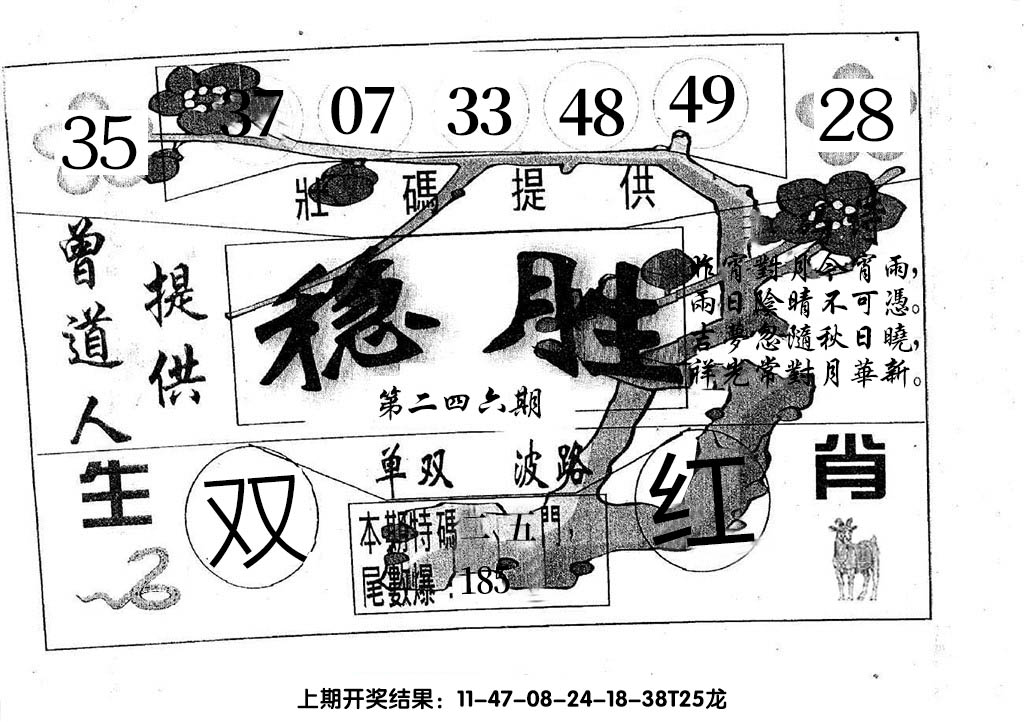 35 37 07 33 48 49 28
壯碼提供
曾道人
提供
穩胜
第二四六期
昨宵對月今宵雨,
雨日陰晴不可憑。
吉夢忽隨秋日曉,
祥光常對月華新。
单双 波路
生 双 红 肖
本期特碼二、五門,
尾數爆:185
上期开奖结果:11-47-08-24-18-38T25龙